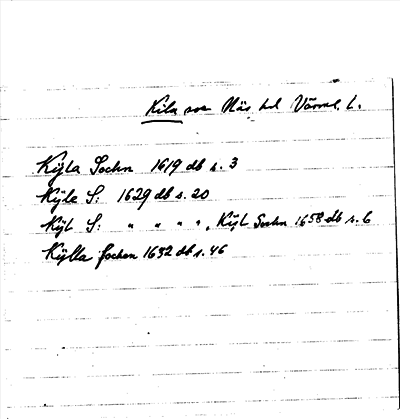 Kila sn Näs hd Värml. L.
Kÿla Sochn 1619 db s. 3
Kÿle S: 1629 db s. 20
Kÿl S: " " " ", Kÿl Sochn 1658 db s. 6
Kÿlla sochen 1652 db s. 46